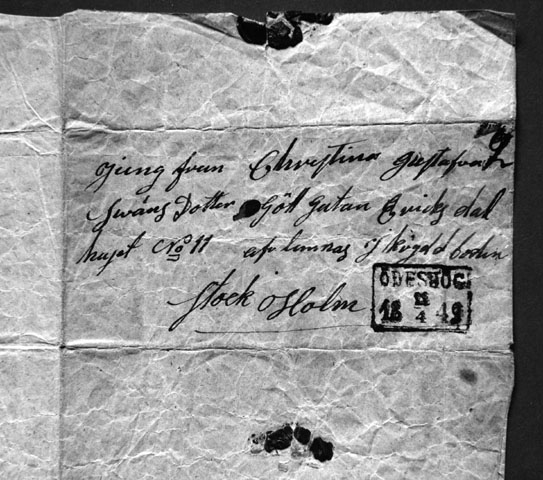 Jungfrun Christina Gustafva
Swäns Dotter Göt gatan Ericksdal
huset No 11 aflemnas I krydd boden
Stock Holm
ÖDESHÖG
18 4 49